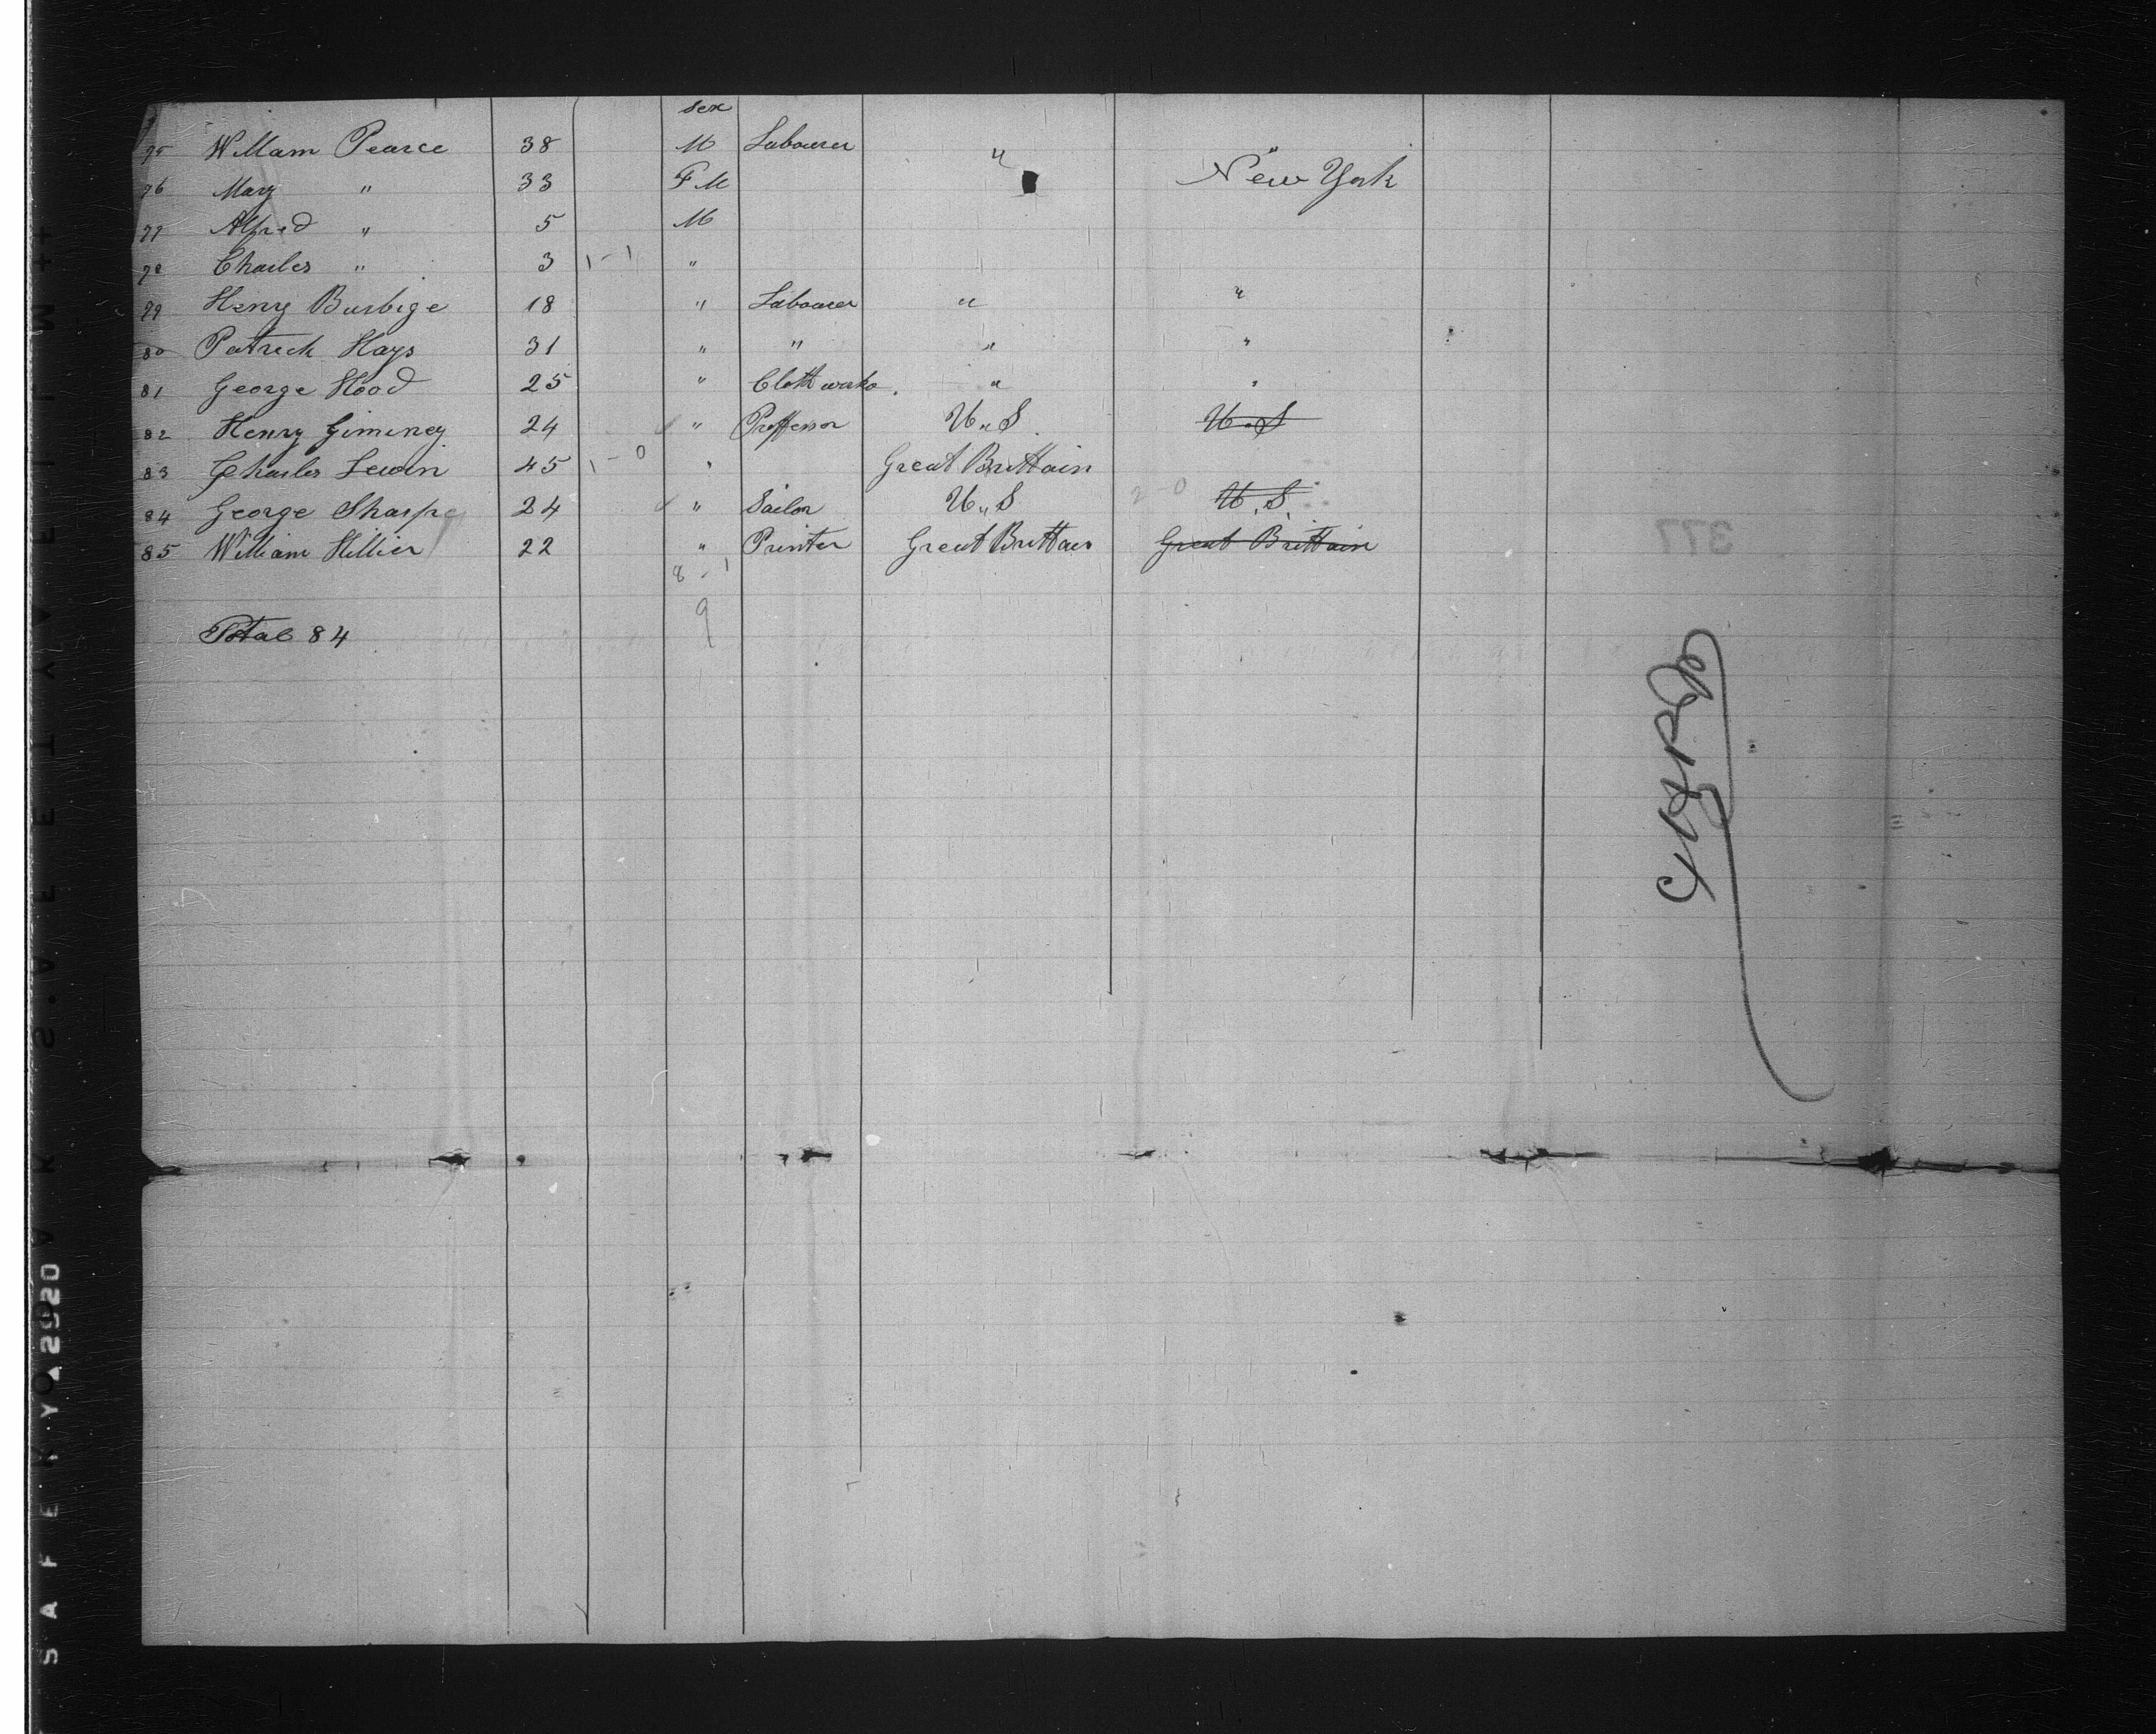 sex
75 William Pearce 38 M Labourer " "
76 Mary " 33 F M New York
77 Alfred " 5 M
78 Charles " 3 1-1 "
79 Henry Burbige 18 " Labourer " "
80 Patrick Hays 31 " " " "
81 George Hood 25 " Cloth worko. " "
82 Henry Giminey 24 " Proffessor U"S U.S
83 Charles Lewin 45 1-0 " Great Brittain
84 George Sharpe 24 " Sailor U"S 2-0 U.S.
85 William Hillier 22 " Printer Great Brittain Great Brittain
8-1
9
Total 84
377